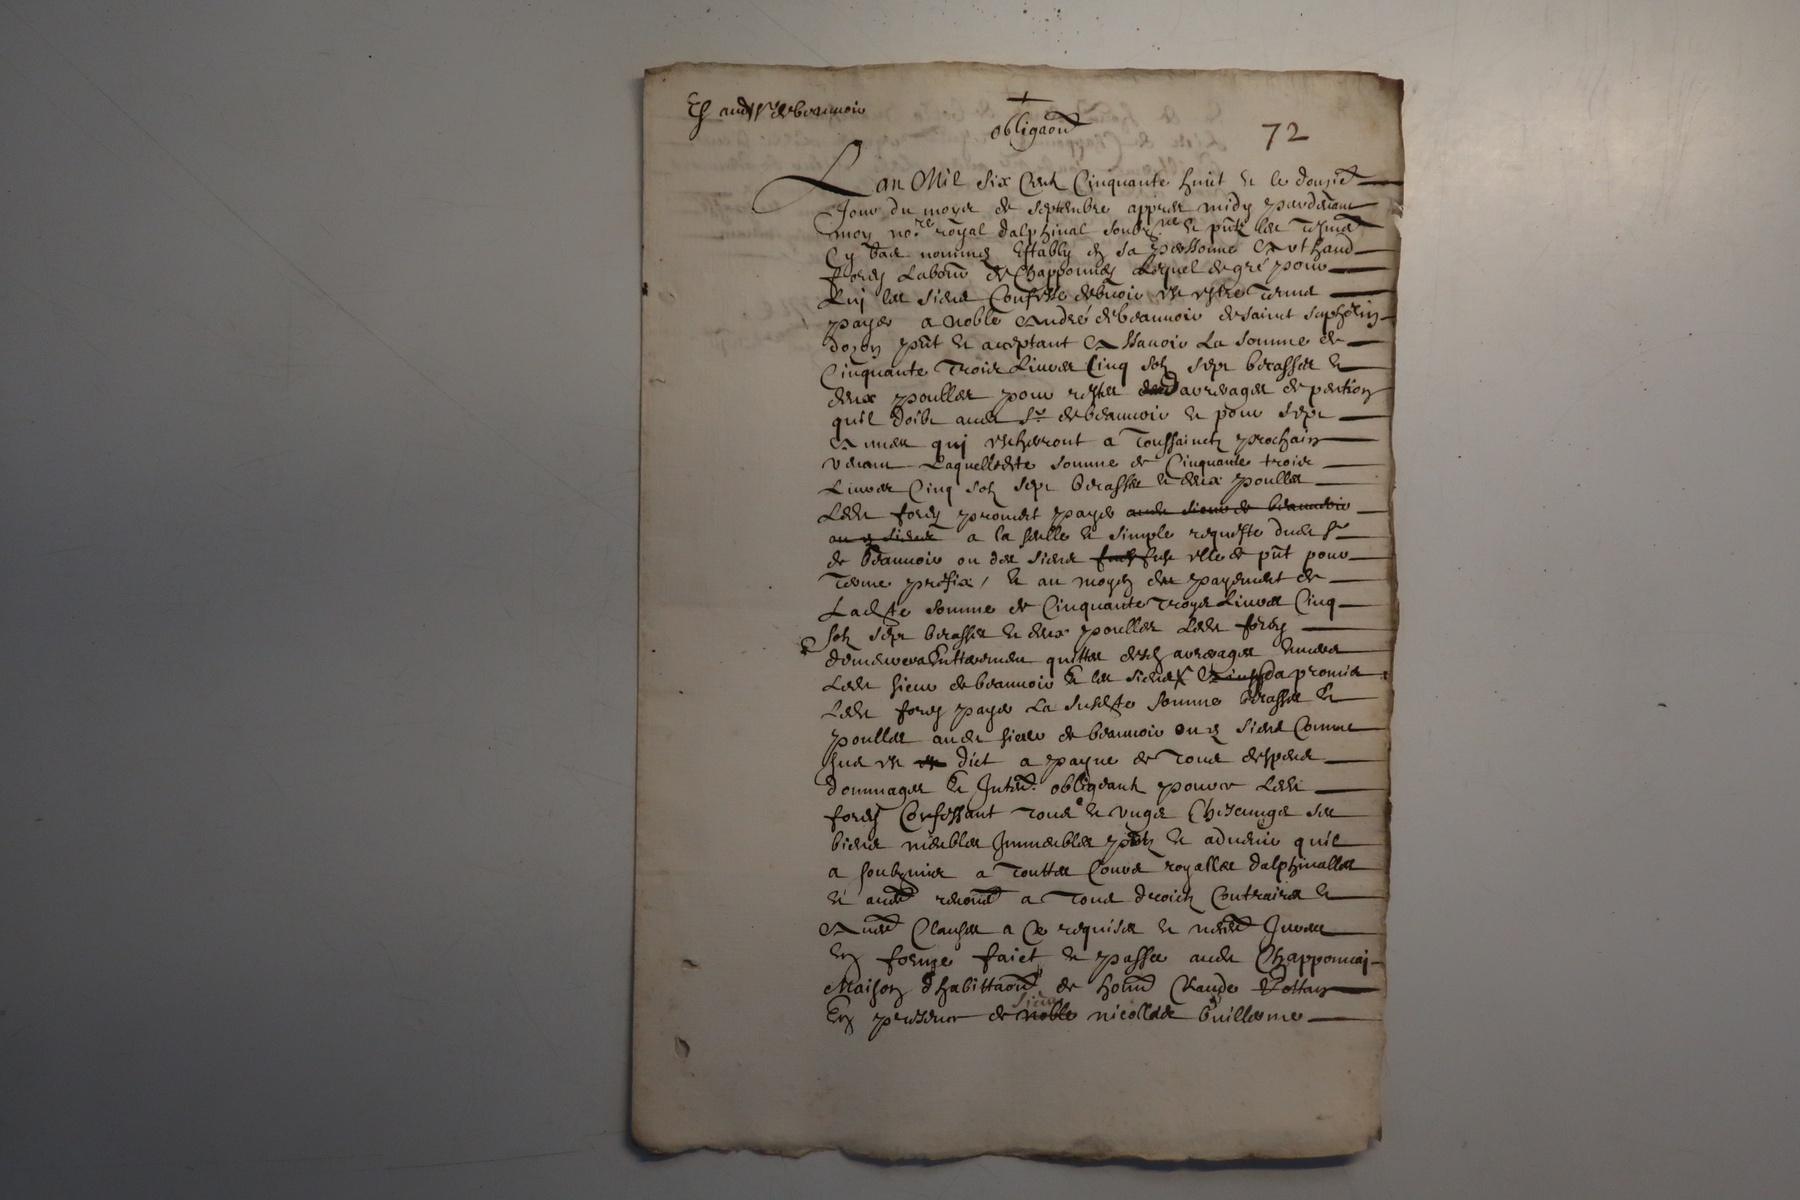 audt sr de beauvoir
obligaōn
72
Lan Mil six Centz Cinquante huict et le douzie
Jour du moys de septembre appres midy pardevant
moy nore royal dalphinal soubzne et pntz les tesmoi
Cy bas nommes Estably en sa personne Anthand
forey Laboure de Chapponnay Lequel de gré pour
Luy les siens Confesse debvoir et estre tenu
payer a noble André de beauvoir de sainct saphorin
dozon pnt et aceptant Assavoir La somme de
Cinquante Trois Livres Cinq solz sept bicasses et
deux poulles pour reste arrerages de pention
quil doibt audt sr de beauvoir et pour sept
Annees qui escherront a Toussainctz prochain
venant Laquelledite somme de Cinquante trois
Livres Cinq solz sept bicasses et deux poulles
Ledt forey promect payer audt sieur de beauvoir
ou es siens a la seulle et simple requeste dudt sr
de beauvoir ou des siens pnt pour
Terme prefix, et au moyen du payement de
Ladite somme de Cinquante Troys Livres Cinq
solz sept bicasses et deux poulles Ledt forey
demeurera Entierement quitte desdz arrerages Envers
Ledt sieur de beauvoir Et les siens promis
Ledt forey payer La susdite somme bicasses Et
poulles audt sieur de beauvoir ou es siens Comme
sus est dict a payne de Tous despens
dommages Et Interestz obligeant pour ce Ledt
forey Confessant Tous et ungs Chescungs ses
biens meubles Immeubles pntz et advenir quil
a soubzmis a Touttes Cours royalles dalphinalles
et aues renond a Tous droictz Contraires et
Aues Clauses a Ce requises et nécess Jurees
En forme faict et passe audt Chapponnay
Maison dhabittaōn de honn Claude
En presence de noble sieur nicollas Guillerme